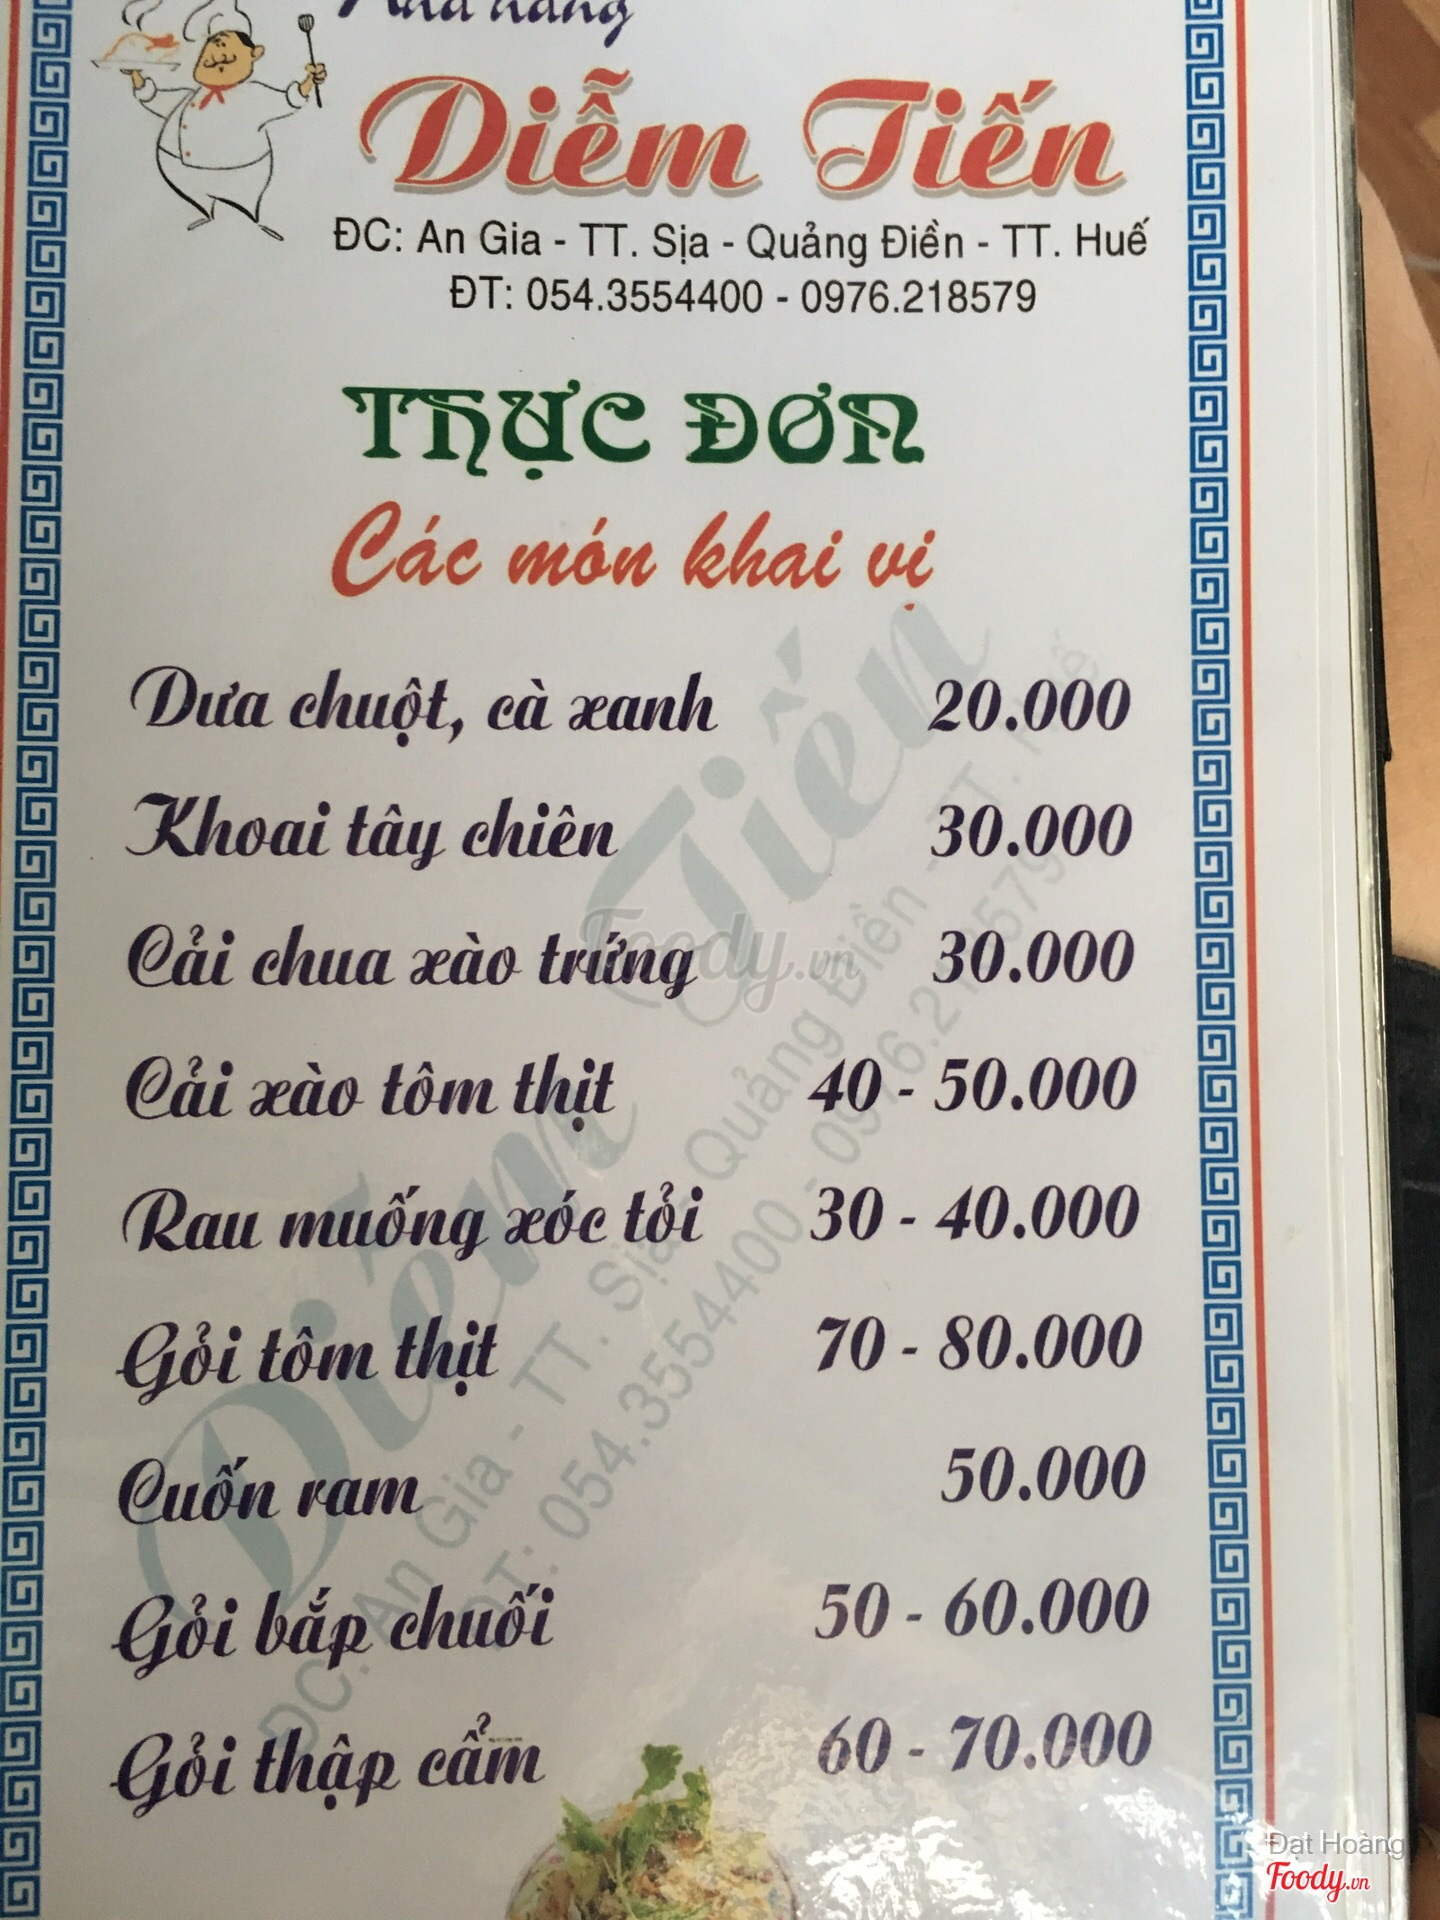 Nhà hàng
Diễm Tiến
ĐC: An Gia - TT. Sịa - Quảng Điền - TT. Huế
ĐT: 054.3554400 - 0976.218579
THỰC ĐƠN
Các món khai vị
Dưa chuột, cà xanh 20.000
Khoai tây chiên 30.000
Cải chua xào trứng 30.000
Cải xào tôm thịt 40 - 50.000
Rau muống xóc tỏi 30 - 40.000
Gỏi tôm thịt 70 - 80.000
Cuốn ram 50.000
Gỏi bắp chuối 50 - 60.000
Gỏi thập cẩm 60 - 70.000
Diễm Tiến
ĐC: An Gia - TT. Sịa - Quảng Điền - TT. Huế
ĐT: 054.3554400 - 0976.218579
Foody.vn
Đạt Hoàng
Foody.vn